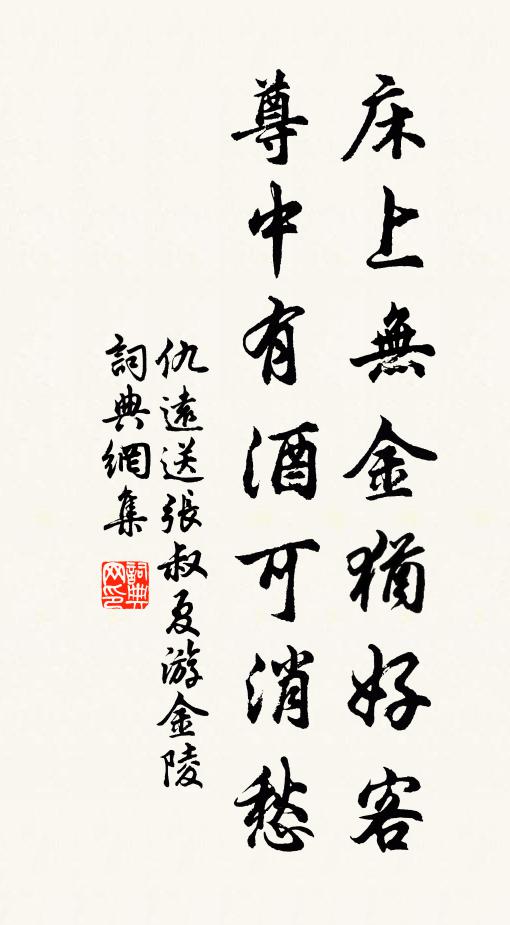 床上無金猶好客
尊中有酒可消愁
仇遠送張叔夏游金陵
詞典網集
詞典网印